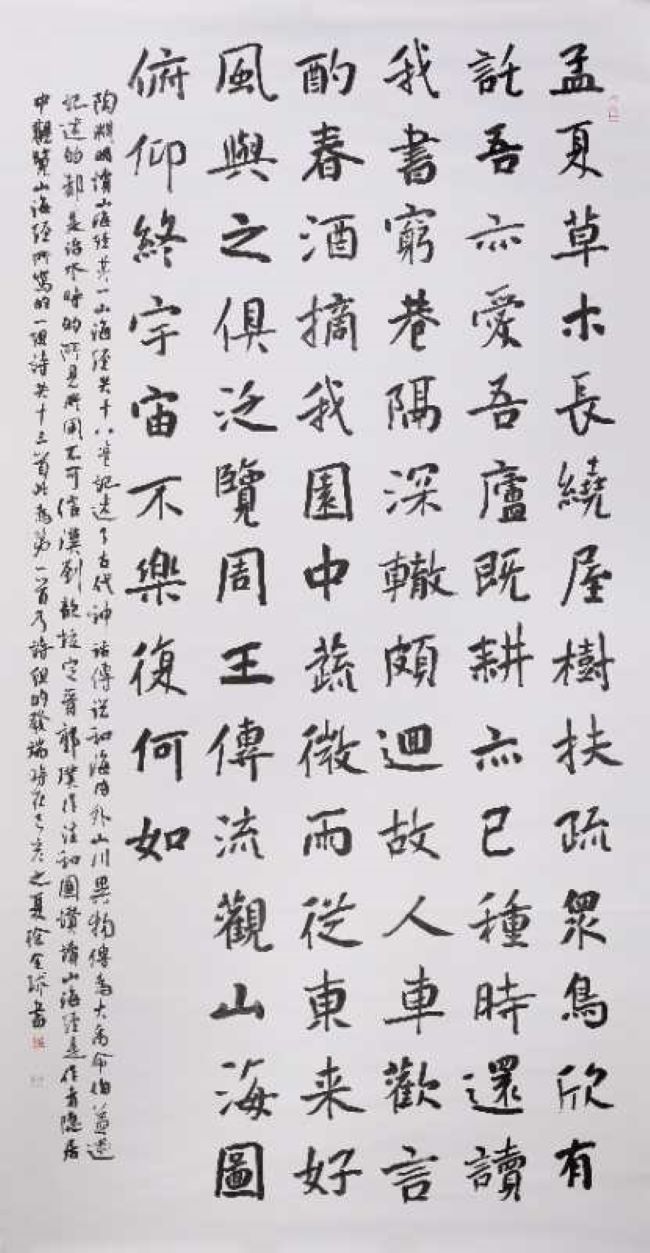 孟夏草木長繞屋樹扶疏眾鳥欣有
託吾亦愛吾廬既耕亦已種時還讀
我書窮巷隔深轍頗迴故人車歡言
酌春酒摘我園中蔬微雨從東来好
風與之俱泛覽周王傳流觀山海圖
俯仰終宇宙不樂復何如
陶淵明讀山海经其一山海経共十八卷記述了古代神話傳说和海内外山川異物傳为大禹命伯益
記述的都是治水時的所見所聞不可信漢劉歆校定晋郭璞作注和圖讚讀山海经是作者隐居
中觀覽山海经所寫的一组詩共十三首此為第一首乃詩组的發端時在己亥之夏徐金書